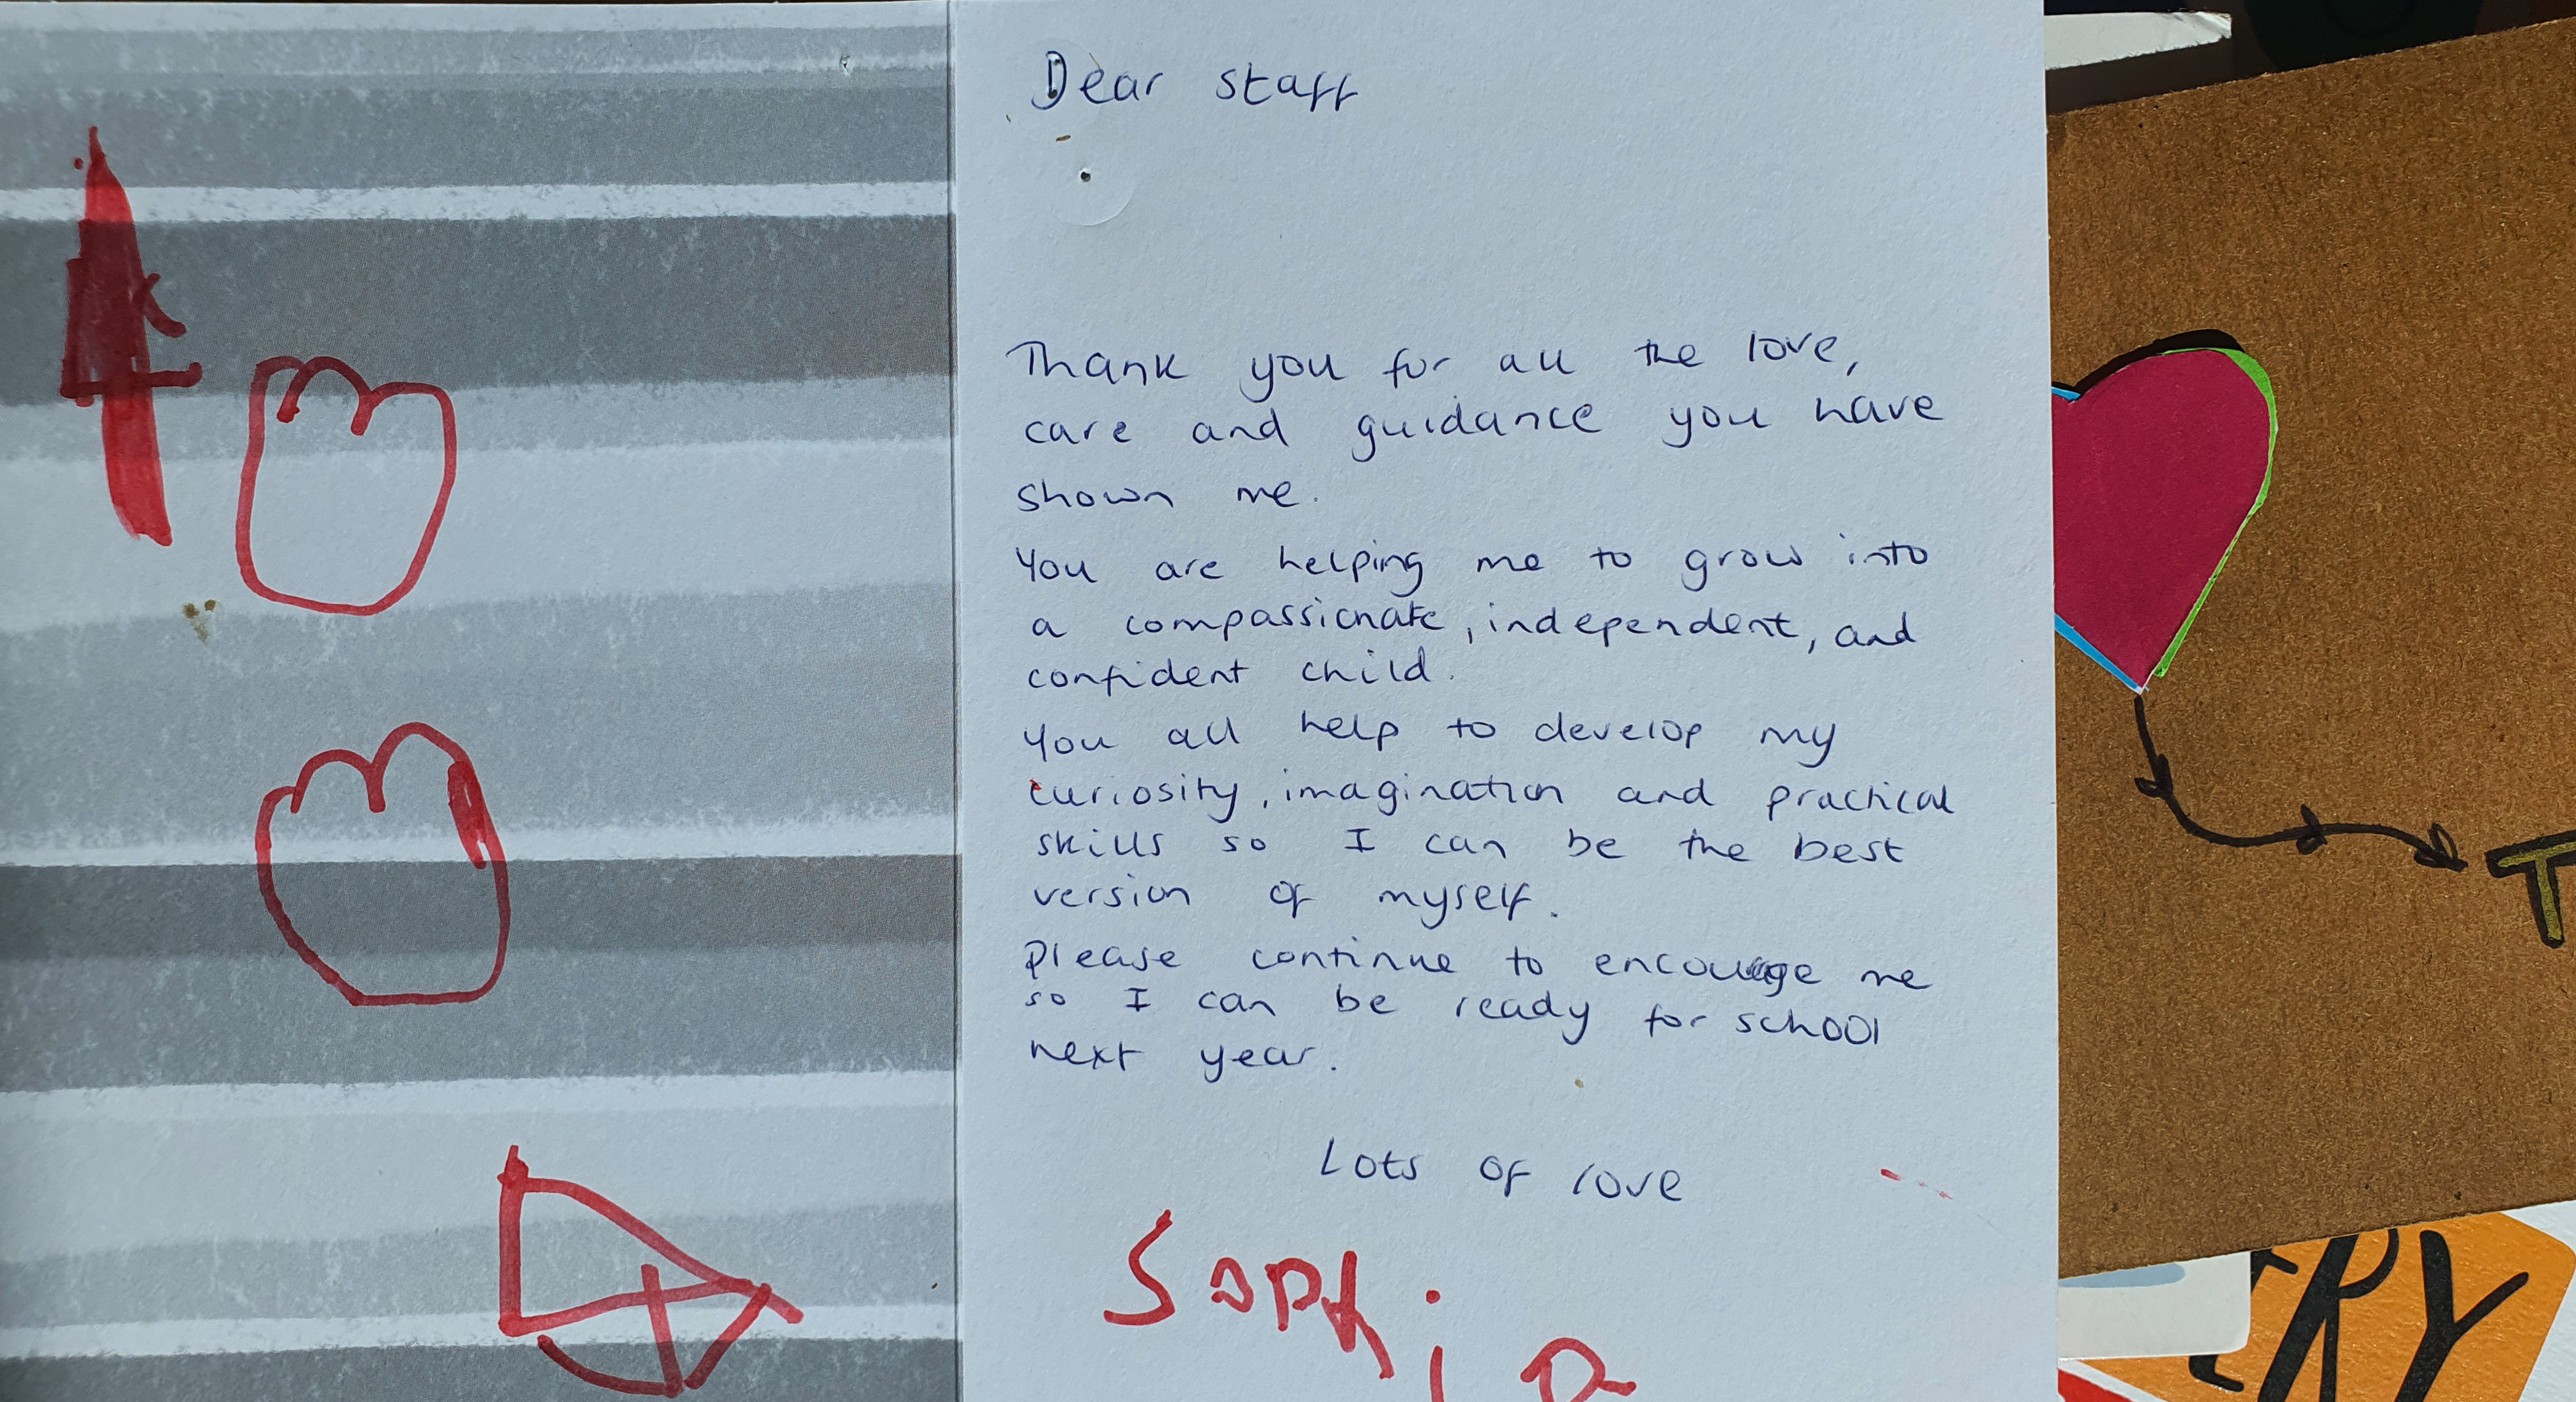 Dear staff
Thank you for all the love,
care and guidance you have
shown me.
You are helping me to grow into
a compassionate, independent, and
confident child.
You all help to develop my
curiosity, imagination and practical
skills so I can be the best
version of myself.
Please continue to encourage me
so I can be ready for school
next year.
Lots of love
Sophia
T
RY